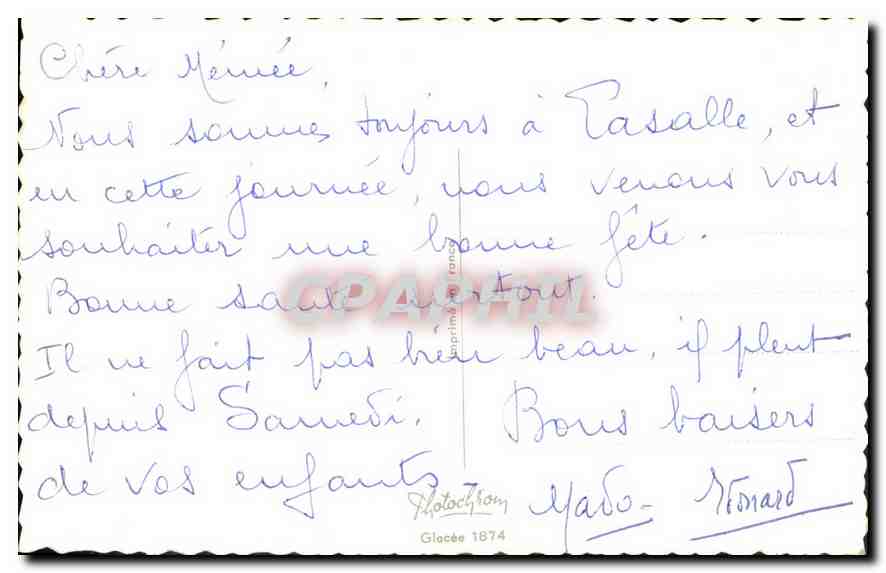 Chère Mémée,
Nous sommes toujours à Lasalle, et
en cette journée, nous venons vous
souhaiter une bonne fête.
Bonne santé surtout.
CPAPHIL
Imprimé en France
Il ne fait pas bien beau, il pleut
depuis Samedi. Bons baisers
de vos enfants
Mado -
Photochrom
Glacée 1874